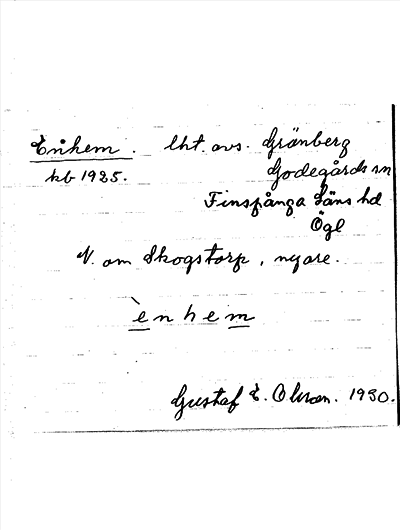 Enhem. lht. avs. Gränberg
kb 1925. Godegårds sn
Finspånga Läns hd
Ögl
N. om Skogstorp, nyare.
ènhem
Gustaf E. Olsson. 1930.